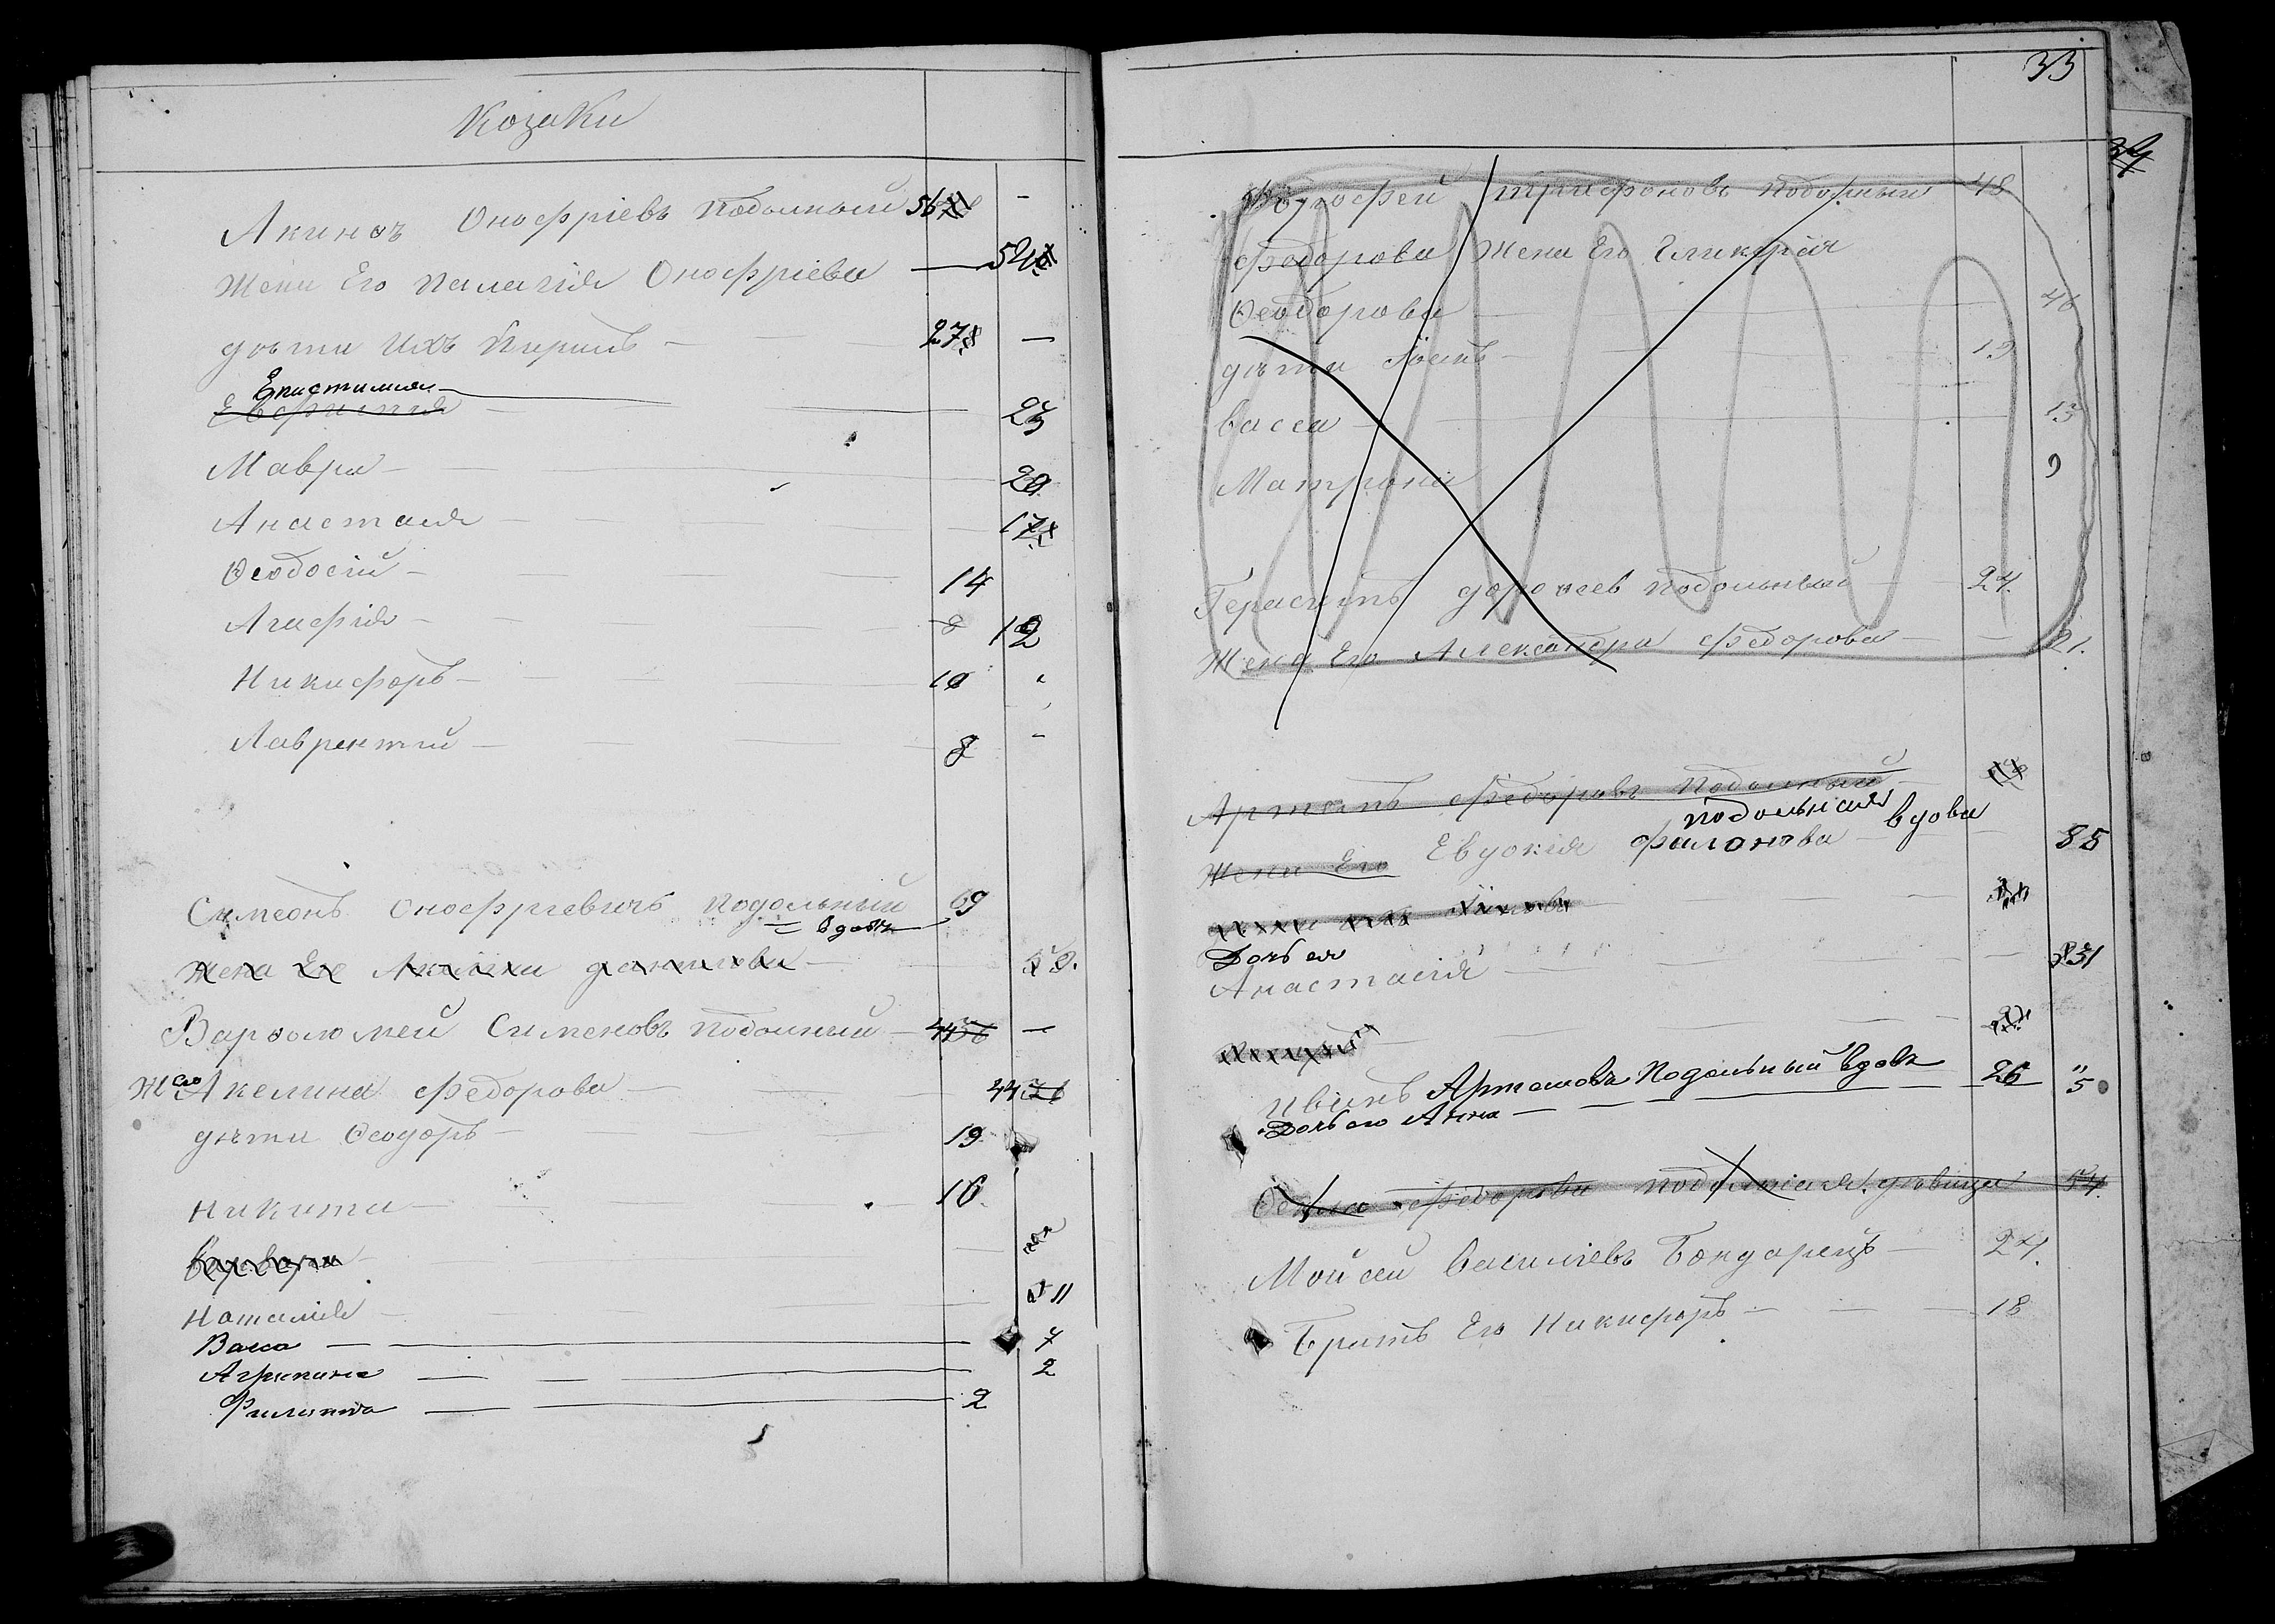 Козаки
Акинѳъ Онофріевъ Подольный 56 —
Жена Его Палагія Онофріева — 54
дѣти Ихъ Кирилъ — 27 —
Епистимия
Евфимія — 23
Мавра — 20
Анастасія — 17
Ѳеодосій — 14
Агафія — 8 12
Никифоръ — 10
Лаврентій — 8 -
Симеонъ Онофріевичъ Подольный 69
вдовъ
Жена Его Данилова —
Варѳоломей Сименовъ Подольный — 44 —
Ж его Акелина Федорова — 44
дѣти Ѳеодоръ — 19
Никита — 16.
Варвара —
Наталія — 11
Васса — 7
Агрипина — 2
Филиппъ — 2
33
34
Дорофей Трифоновъ Подольный 48
Федорова Жена Его Гликерія
Ѳеодорова — 46
дѣти — 19
Васса — 13
Матрона 9
Герасимъ Дорофеев Подольный — 24.
Жена Его Александра Федорова — 21.
Артемъ Федоровъ Подольный
Подольная вдова
Жена Его Евдокія — 55
Дочь ея
Анастасія — 31
Иванъ Артемовъ Подольный вдовъ 26 "
Дочь его Анна — 5
Федорова Подольная вдовица 54.
Мойсей Василіевъ Бондарецъ — 24.
Братъ Его Никифоръ — 18